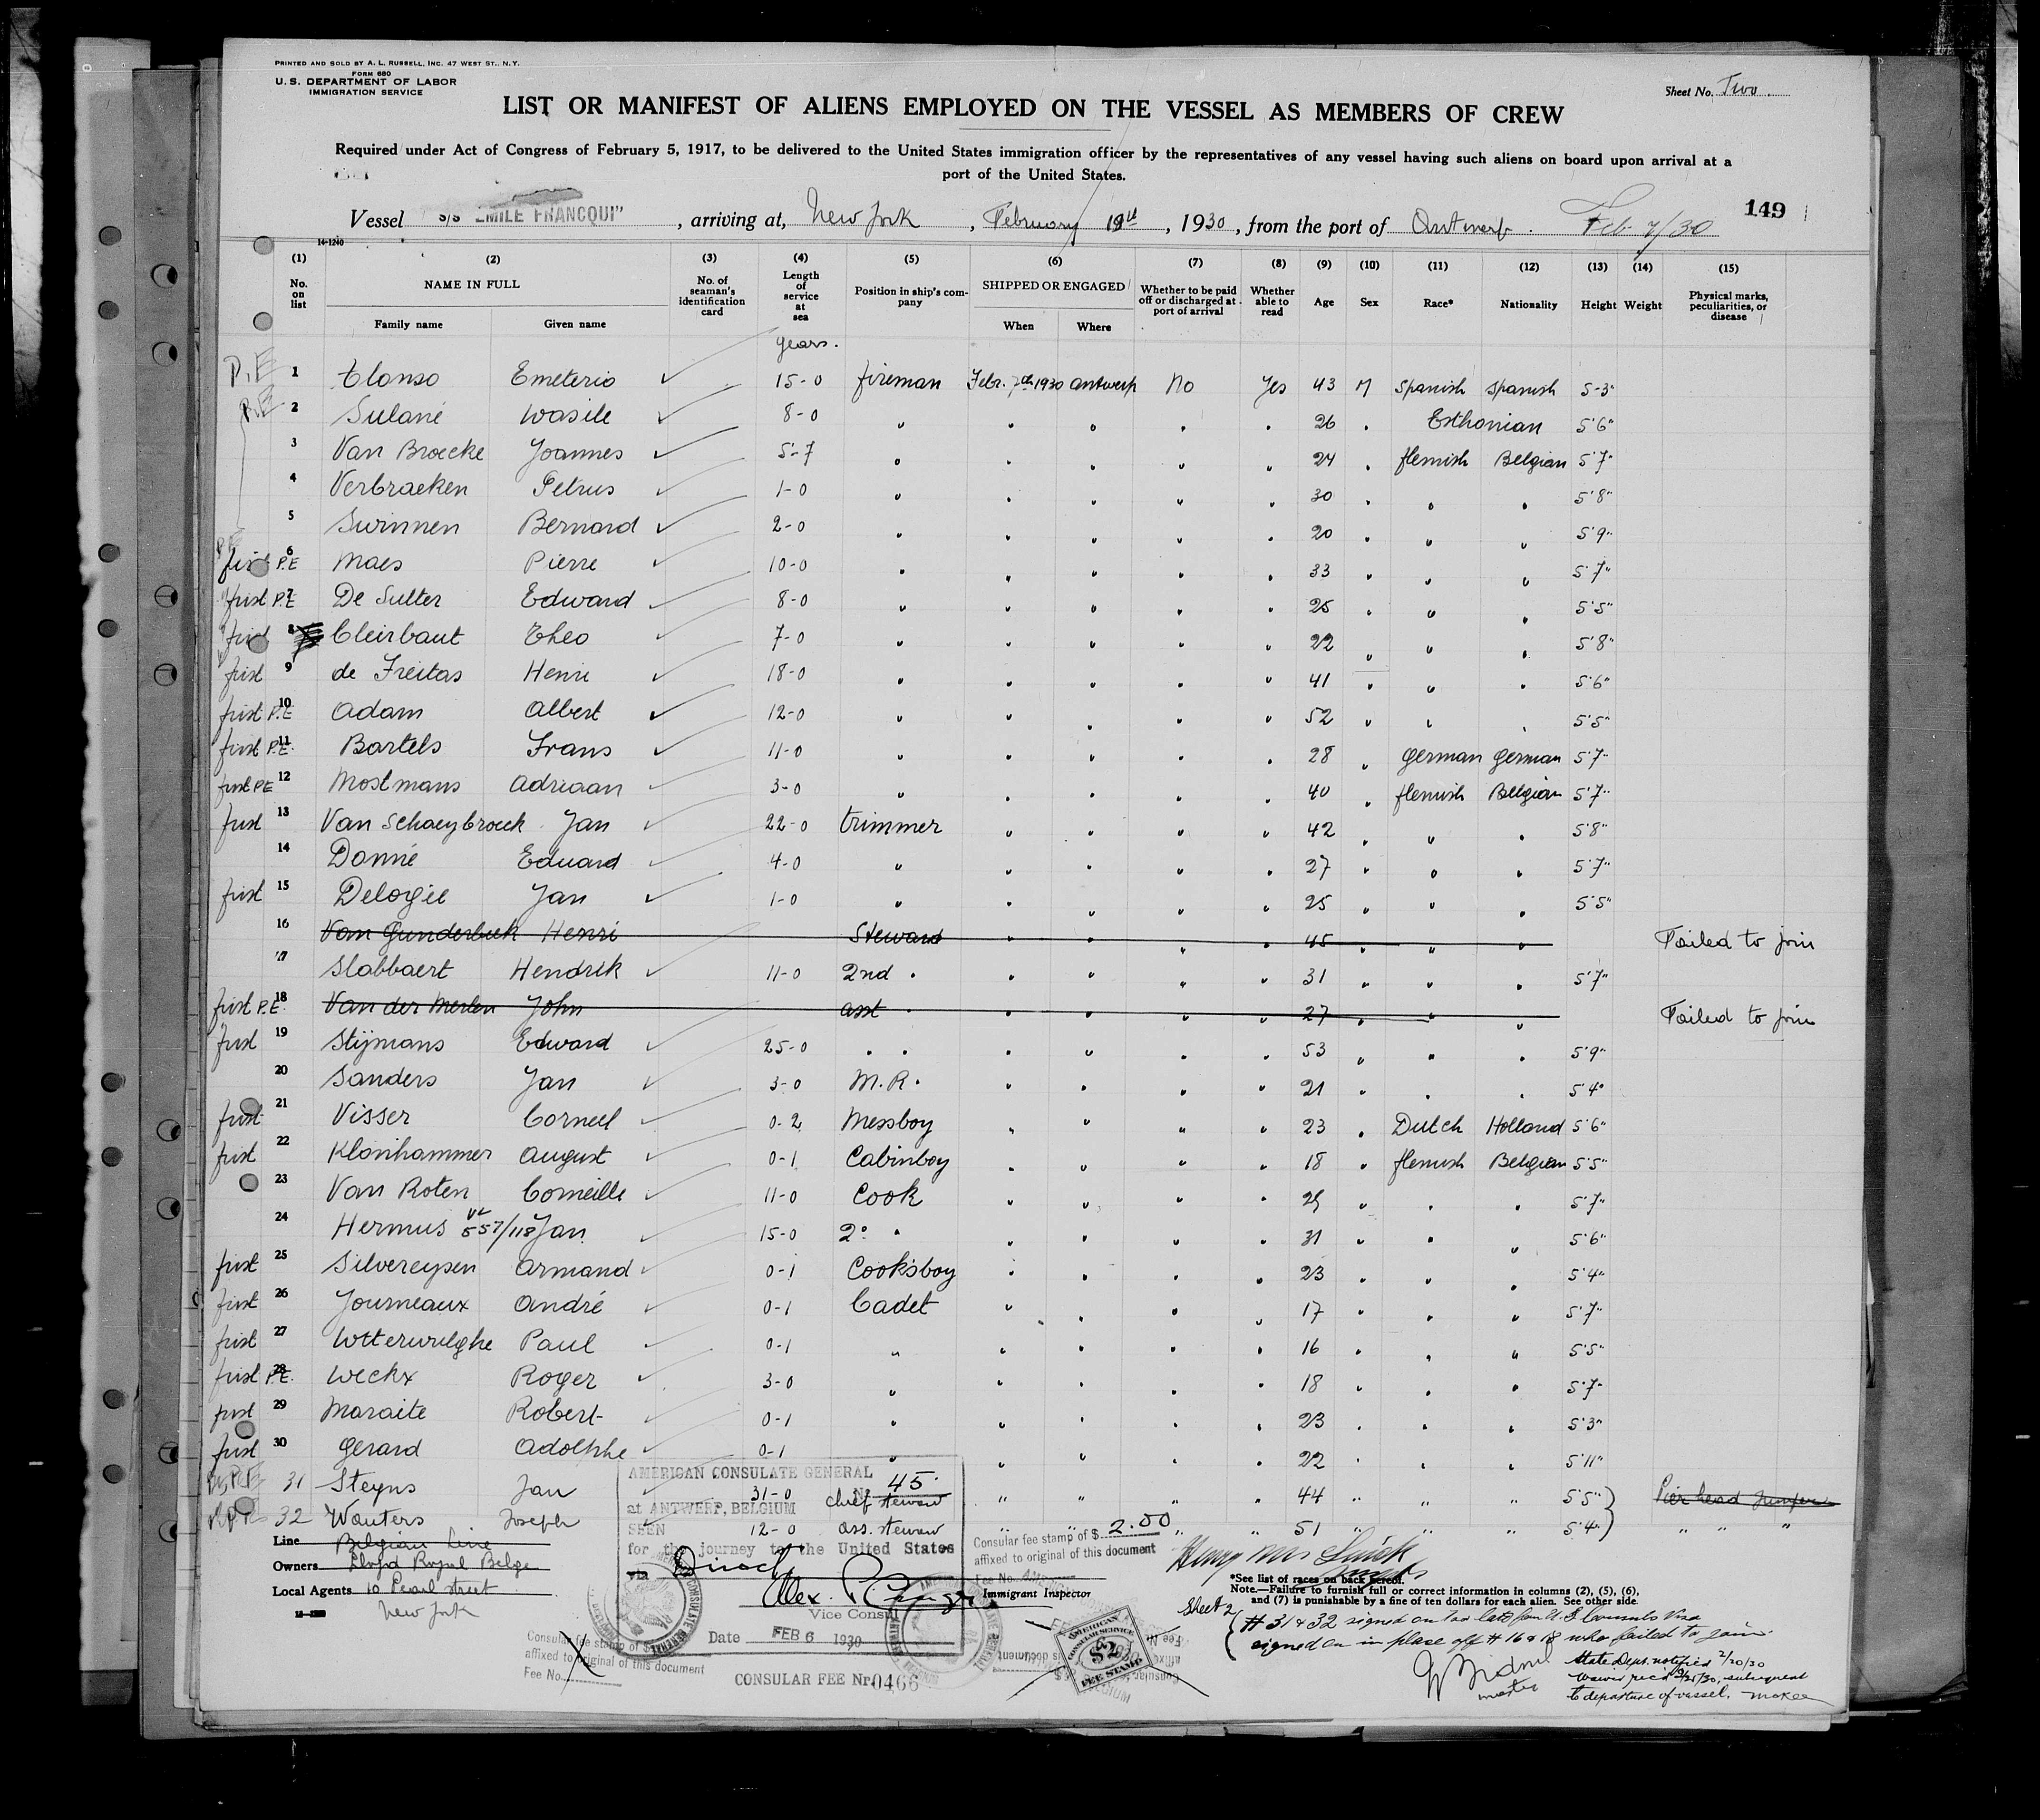 PRINTED AND SOLD BY A. L. RUSSELL, INC. 47 WEST ST., N.Y.
FORM 680
U. S. DEPARTMENT OF LABOR
IMMIGRATION SERVICE
Sheet No. Two
LIST OR MANIFEST OF ALIENS EMPLOYED ON THE VESSEL AS MEMBERS OF CREW
Required under Act of Congress of February 5, 1917, to be delivered to the United States immigration officer by the representatives of any vessel having such aliens on board upon arrival at a
port of the United States.
149
Vessel S/S "EMILE FRANCQUI", arriving at, New York, February 19th, 1930, from the port of Antwerp. Feb 7/30
14-1240
(1) (2) (3) (4) (5) (6) (7) (8) (9) (10) (11) (12) (13) (14) (15)
No. on list NAME IN FULL Family name Given name No. of seaman's identification card Length of service at sea Position in ship's company SHIPPED OR ENGAGED When Where Whether to be paid off or discharged at port of arrival Whether able to read Age Sex Race* Nationality Height Weight Physical marks, peculiarities, or disease
years.
P.E 1 Alonso Emeterio 15-0 fireman Febr. 7th 1930 Antwerp No Yes 43 M Spanish Spanish 5-3"
P.E 2 Sulané Wasile 8-0 " " " " " 26 " Esthonian 5'6"
3 Van Broecke Joannes 5-7 " " " " " 24 " flemish Belgian 5'7"
4 Verbraeken Petrus 1-0 " " " " " 30 " " " 5'8"
5 Swinnen Bernard 2-0 " " " " " 20 " " " 5'9"
first P.E 6 Maes Pierre 10-0 " " " " " 33 " " " 5'7"
first P.E 7 De Sutter Edward 8-0 " " " " " 25 " " " 5'5"
first 8 Cleirbaut Theo 7-0 " " " " " 22 " " " 5'8"
first 9 de Freitas Henri 18-0 " " " " " 41 " " " 5'6"
first P.E 10 Adam Albert 12-0 " " " " " 52 " " " 5'5"
first P.E. 11 Bartels Frans 11-0 " " " " " 28 " German German 5'7"
first P.E 12 Mostmans Adriaan 3-0 " " " " " 40 " flemish Belgian 5'7"
first 13 Van Schaeybroeck Jan 22-0 trimmer " " " " 42 " " " 5'8"
14 Donné Eduard 4-0 " " " " " 27 " " " 5'7"
first 15 Delogie Jan 1-0 " " " " " 25 " " " 5'5"
16 Van Gunderbeek Henri Steward " " " " 45 " " " Failed to join
17 Slabbaert Hendrik 11-0 2nd " " " " " 31 " " " 5'7"
first P.E. 18 Van der Merlen John asst " " " " " 27 " " " Failed to join
first 19 Stijmans Edward 25-0 " " " " " " 53 " " " 5'9"
20 Sanders Jan 3-0 M.R. " " " " 21 " " " 5'4"
first 21 Visser Corneel 0-2 Messboy " " " " 23 " Dutch Holland 5'6"
first 22 Klonhammer August 0-1 Cabinboy " " " " 18 " flemish Belgian 5'5"
23 Van Roten Corneille 11-0 Cook " " " " 29 " " " 5'7"
24 Hermus 557/118 Jan 15-0 2° " " " " " 31 " " " 5'6"
first 25 Silvereysen Armand 0-1 Cooksboy " " " " 23 " " " 5'4"
first 26 Journeaux André 0-1 Cadet " " " " 17 " " " 5'7"
first 27 Wtterwulghe Paul 0-1 " " " " " 16 " " " 5'5"
first P.E. 28 Weckx Roger 3-0 " " " " " 18 " " " 5'7"
first 29 Maraite Robert 0-1 " " " " " 23 " " " 5'3"
first 30 Gerard Adolphe 0-1 " " " " " 22 " " " 5'11"
31 Steyns Jan 31-0 chief steward " " " " 44 " " " 5'5" Pier head Jumpers
32 Wauters Joseph 12-0 ass. steward " " " " 51 " " " 5'4" " " "
AMERICAN CONSULATE GENERAL
No 45
at ANTWERP, BELGIUM
SEEN
for the journey to the United States
via Direct
Vice Consul
Date FEB 6 1930
CONSULAR FEE Nr 0466
Line Belgian Line
Owners Lloyd Royal Belge
Local Agents 10 Pearl street
New York
Consular fee stamp of $
affixed to original of this document
Fee No.
Consular fee stamp of $ 2.00
affixed to original of this document
Fee No.
Immigrant Inspector
AMERICAN CONSULAR SERVICE
$2
FEE STAMP
*See list of races on back hereof.
Note.—Failure to furnish full or correct information in columns (2), (5), (6),
and (7) is punishable by a fine of ten dollars for each alien. See other side.
Sheet 2 # 31 & 32 signed on too late for U.S Consuls Visa
signed on in place off # 16 & 18 who failed to join.
master
State Dept. notified 2/20/30
Waiver rec'd 2/21/30, subsequent
to departure of vessel. McKee